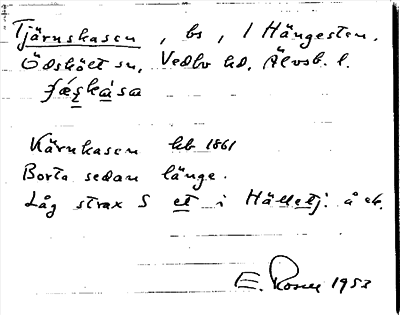 Tjärnkasen, bs, / Hängesten.
Ödskölt sn, Vedbo hd, Älvsb. l.
Kärnkasen hb 1861
Borta sedan länge.
Låg strax S et i Hälletj: å ek.
E. Rosell 1953